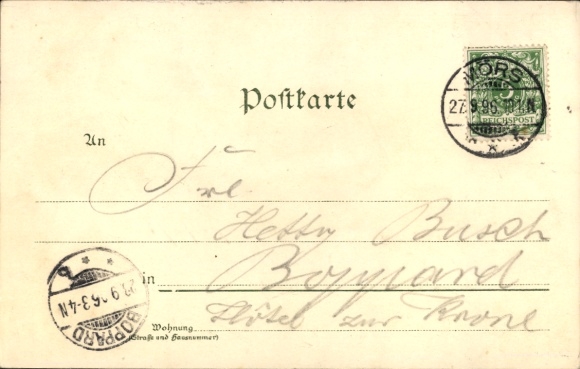 Postkarte
MÖRS
27.9.96. 10-11.N
REICHSPOST
An
Frl.
Hetty Busch
in Boppard
Wohnung Hôtel zur Krone
(Straße und Hausnummer)
BOPPARD
.9.96.3-4N
b